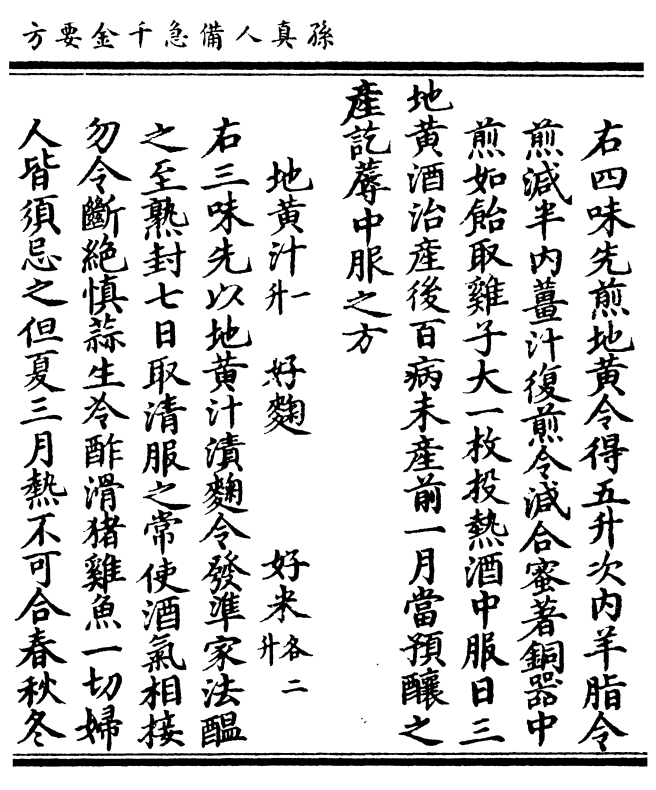 孫真人備急千金要方
右四味先煎地黄令得五升次内羊脂令
煎減半内薑汁復煎令減合蜜著銅器中
煎如飴取雞子大一枚投熱酒中服日三
地黄酒治產後百病未產前一月當預釀之
產訖蓐中服之方
地黄汁一升 好麴 好米各二升
右三味先以地黄汁漬麴令發準家法醖
之至熟封七日取清服之常使酒氣相接
勿令斷絶慎蒜生冷酢滑猪雞魚一切婦
人皆須忌之但夏三月熱不可合春秋冬